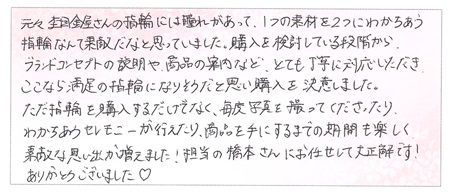 元々杢目金屋さんの指輪には憧れがあって、1つの素材を2つにわかちあう
指輪なんて素敵だなと思っていました。購入を検討している段階から、
ブランドコンセプトの説明や、商品の案内など、とても丁寧に対応いただき
ここなら満足の指輪になりそうだと思い購入を決意しました。
ただ指輪を購入するだけでなく、毎度写真を撮ってくださったり、
わかちあうセレモニーが行えたり、商品を手にするまでの期間も楽しく
素敵な思い出が増えました!担当の橋本さんにお任せして大正解です!
ありがとうございました♡